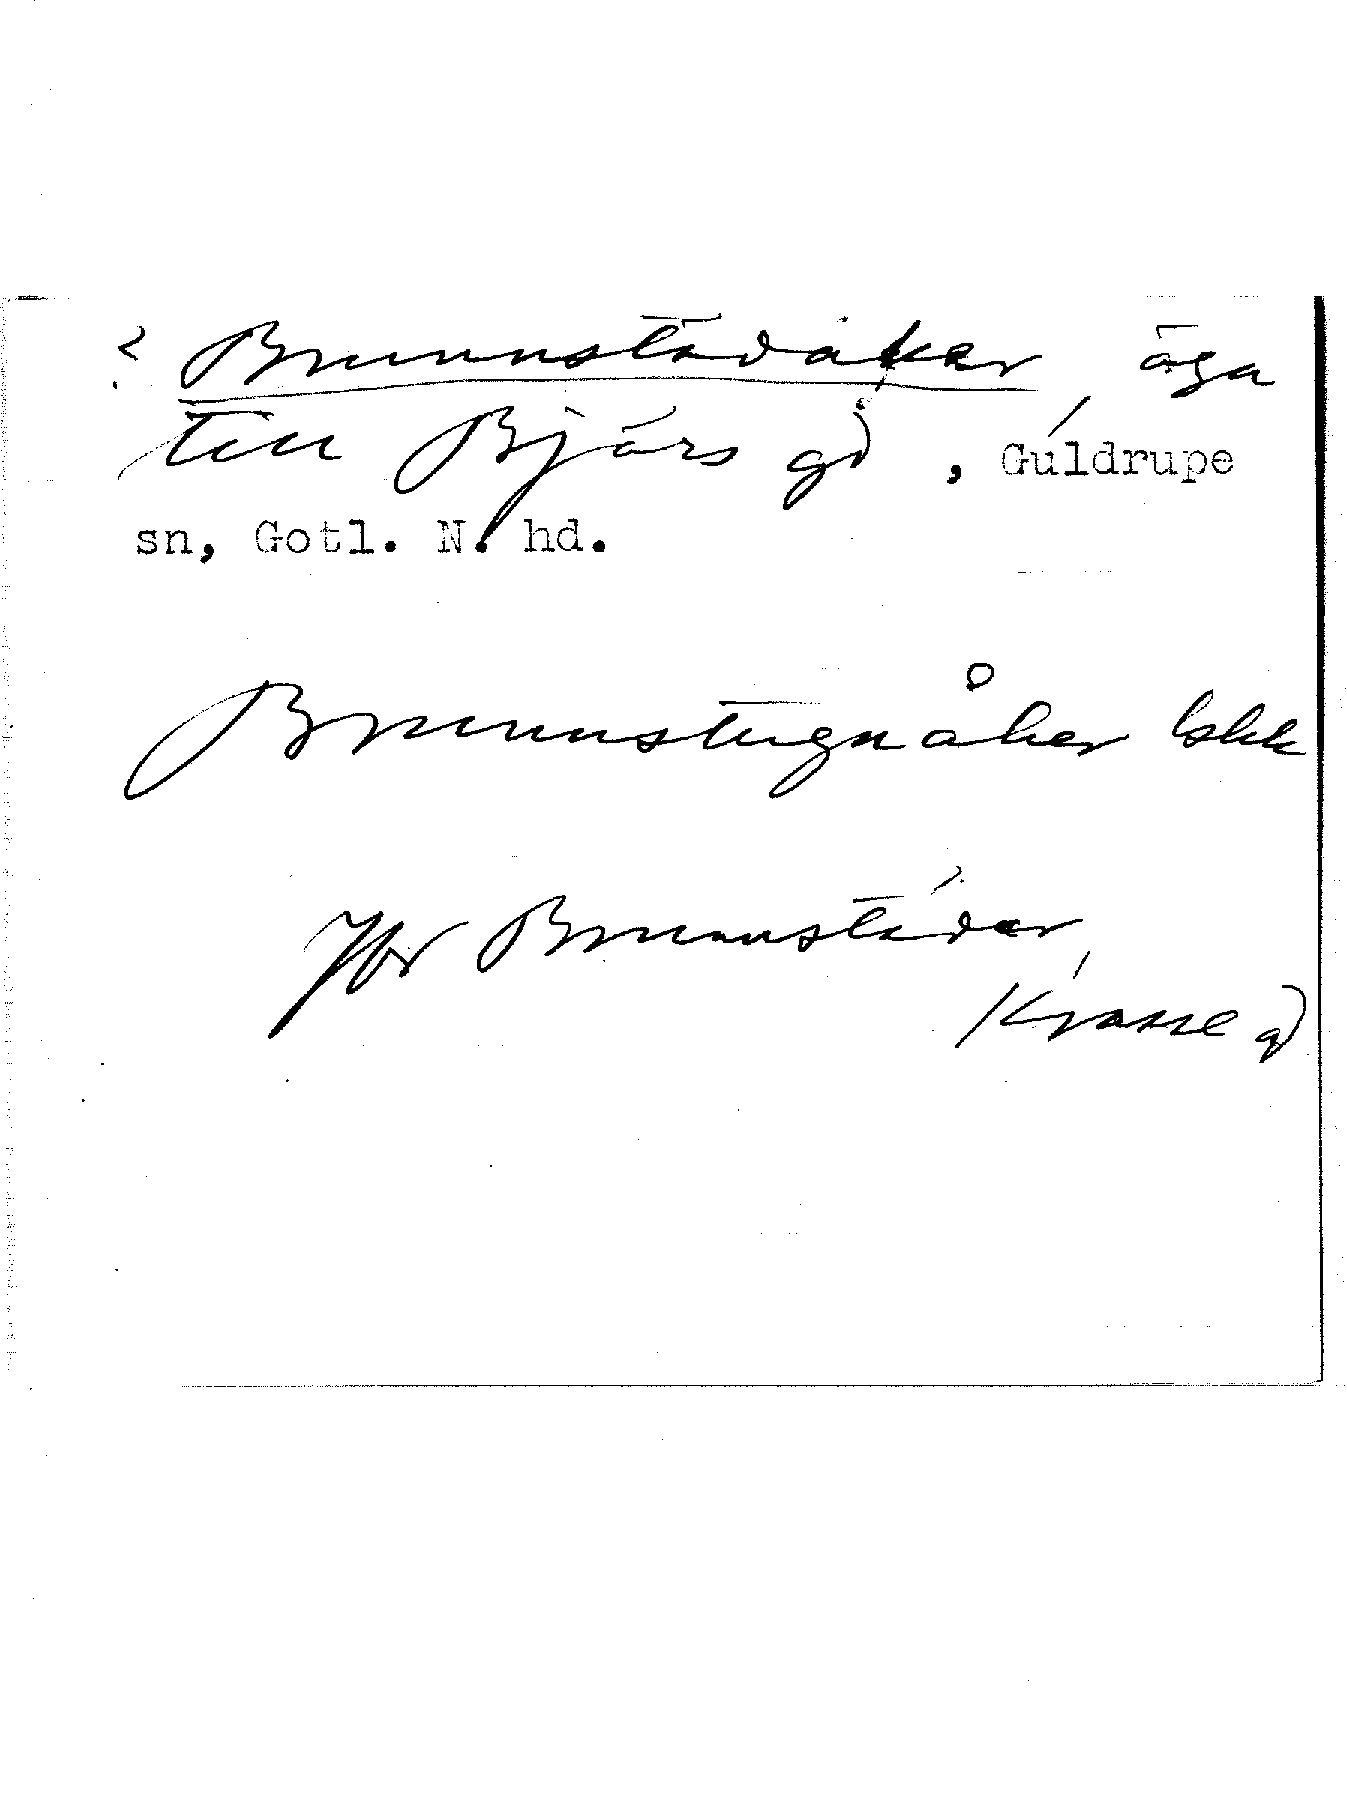 ? Brunnstädåker äga
till Bjärs gd, Guldrupe
sn, Gotl. N. hd.
Brunnstugnåker lskk
Jfr Brunnstädar
Krasse gd